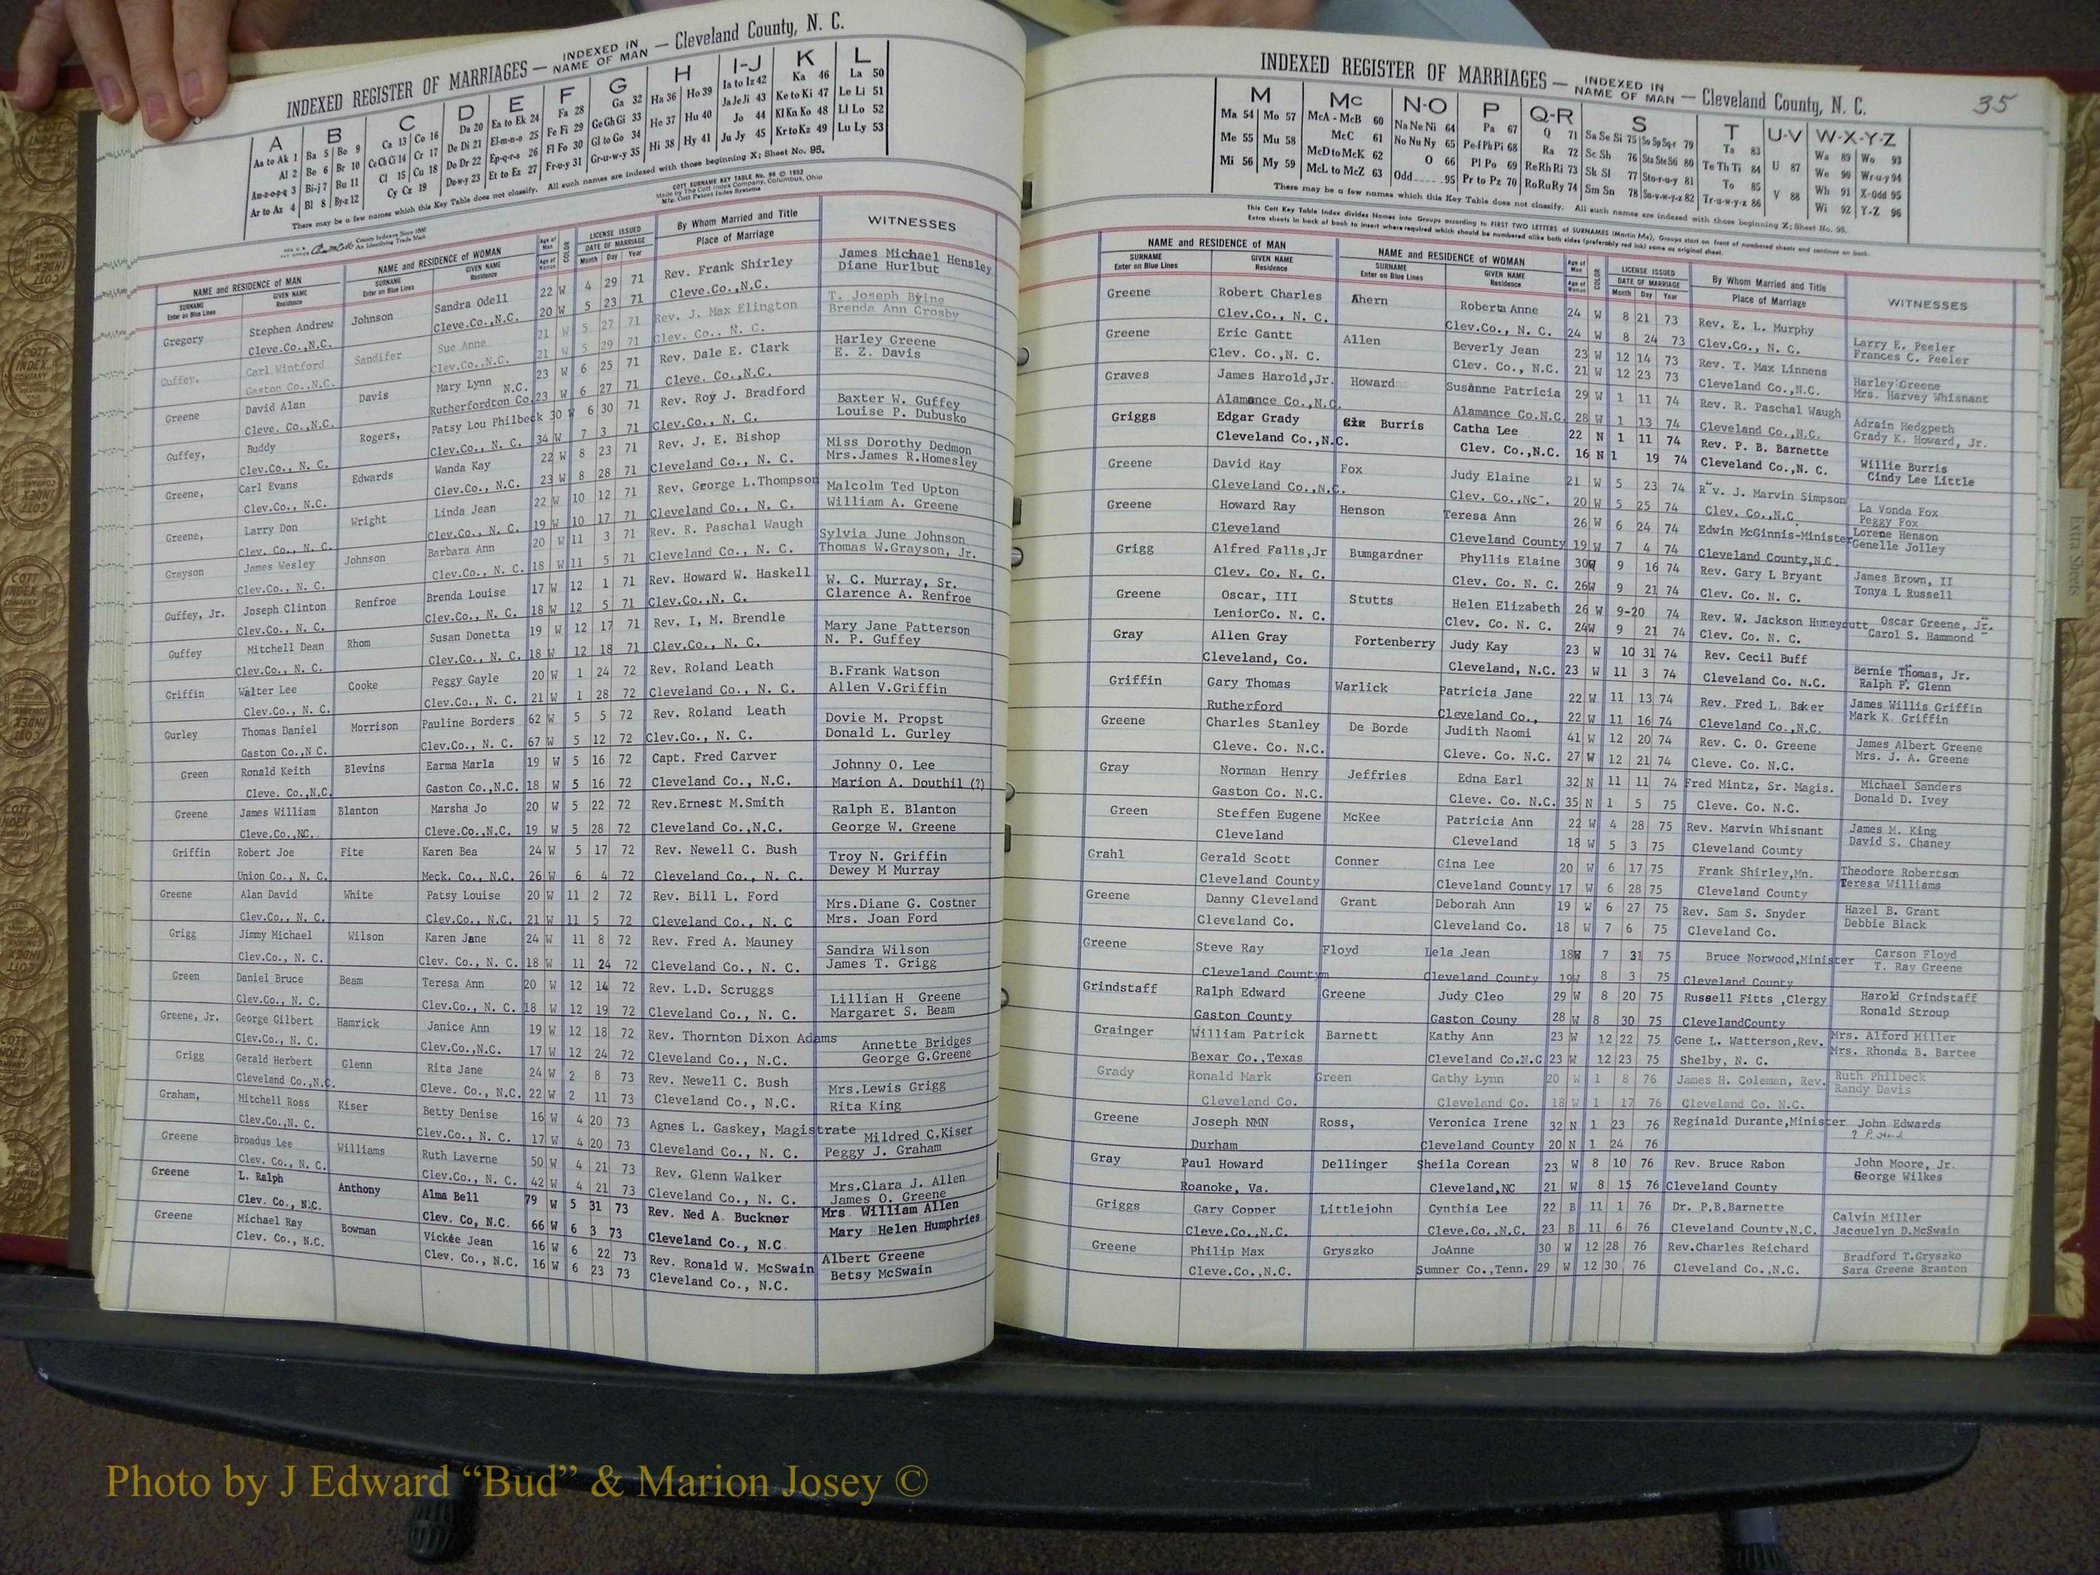 INDEXED REGISTER OF MARRIAGES — INDEXED IN NAME OF MAN — Cleveland County, N. C.
A B C D E F G H I-J K L
Aa to Ak 1 Ba 5 Bo 9 Ca 13 Co 16 Da 20 Ea to Ek 24 Fa 28 Ga 32 Ha 36 Ho 39 Ia to Iz 42 Ka 46 La 50
Al 2 Be 6 Br 10 Ce Ch Ci 14 Cr 17 De Di 21 El-m-n-o 25 Fe Fi 29 Ge Gh Gi 33 He 37 Hu 40 Ja Je Ji 43 Ke to Ki 47 Le Li 51
Am-n-o-p-q 3 Bi-j 7 Bu 11 Cl 15 Cu 18 Do Dr 22 Ep-q-r-s 26 Fl Fo 30 Gl to Go 34 Hi 38 Hy 41 Jo 44 Kl Kn Ko 48 Ll Lo 52
Ar to Az 4 Bl 8 By-z 12 Cy Cz 19 Du-w-y 23 Et to Ez 27 Fr-u-y 31 Gr-u-w-y 35 Ju Jy 45 Kr to Kz 49 Lu Ly 53
There may be a few names which this Key Table does not classify. All such names are indexed with those beginning X; Sheet No. 95.
COTT SURNAME KEY TABLE No. 96 © 1932
Made by The Cott Index Company, Columbus, Ohio
Mfg. Cott Patent Index Systems
County Indexes Since 1888
An Identifying Trade Mark
NAME and RESIDENCE OF MAN NAME and RESIDENCE OF WOMAN Age of Man Age of Woman COLOR LICENSE ISSUED DATE OF MARRIAGE By Whom Married and Title Place of Marriage WITNESSES
SURNAME Enter on Blue Lines GIVEN NAME Residence SURNAME Enter on Blue Lines GIVEN NAME Residence Month Day Year
Gregory Stephen Andrew Johnson Sandra Odell 22 W 4 29 71 Rev. Frank Shirley James Michael Hensley
Cleve.Co.,N.C. Cleve.Co.,N.C. 20 W 5 23 71 Cleve.Co.,N.C. Diane Hurlbut
Guffey, Carl Wintford Sandifer Sue Anne 21 W 5 27 71 Rev. J. Max Elington T. Joseph Byine
Gaston Co.,N.C. Clev.Co.,N.C. 21 W 5 29 71 Clev. Co., N. C. Brenda Ann Crosby
Greene David Alan Davis Mary Lynn 23 W 6 25 71 Rev. Dale E. Clark Harley Greene
Cleve. Co.,N.C. Rutherfordton Co. N.C. 23 W 6 27 71 Cleve. Co.,N.C. E. Z. Davis
Guffey, Buddy Rogers, Patsy Lou Philbeck 30 W 6 30 71 Rev. Roy J. Bradford Baxter W. Guffey
Clev.Co., N. C. Clev.Co., N. C. 34 W 7 3 71 Clev.Co., N. C. Louise P. Dubusko
Greene, Carl Evans Edwards Wanda Kay 22 W 8 23 71 Rev. J. E. Bishop Miss Dorothy Dedmon
Clev.Co., N.C. Clev.Co., N.C. 23 W 8 28 71 Cleveland Co., N. C. Mrs.James R.Homesley
Greene, Larry Don Wright Linda Jean 22 W 10 12 71 Rev. George L.Thompson Malcolm Ted Upton
Clev. Co., N. C. Clev.Co., N. C. 19 W 10 17 71 Cleveland Co., N. C. William A. Greene
Grayson James Wesley Johnson Barbara Ann 20 W 11 3 71 Rev. R. Paschal Waugh Sylvia June Johnson
Clev.Co., N. C. Clev.Co., N. C. 18 W 11 5 71 Cleveland Co., N. C. Thomas W.Grayson, Jr.
Guffey, Jr. Joseph Clinton Renfroe Brenda Louise 17 W 12 1 71 Rev. Howard W. Haskell W. C. Murray, Sr.
Clev.Co., N. C. Clev.Co., N. C. 18 W 12 5 71 Clev.Co.,N. C. Clarence A. Renfroe
Guffey Mitchell Dean Rhom Susan Donetta 19 W 12 17 71 Rev. I, M. Brendle Mary Jane Patterson
Clev.Co., N. C. Clev.Co., N. C. 18 W 12 18 71 Clev.Co., N. C. N. P. Guffey
Griffin Walter Lee Cooke Peggy Gayle 20 W 1 24 72 Rev. Roland Leath B.Frank Watson
Clev.Co., N. C. Clev.Co., N. C. 21 W 1 28 72 Cleveland Co., N. C. Allen V.Griffin
Gurley Thomas Daniel Morrison Pauline Borders 62 W 5 5 72 Rev. Roland Leath Dovie M. Propst
Gaston Co.,N C. Clev.Co., N. C. 67 W 5 12 72 Clev.Co., N. C. Donald L. Gurley
Green Ronald Keith Blevins Earma Marla 19 W 5 16 72 Capt. Fred Carver Johnny O. Lee
Cleve. Co.,N.C. Gaston Co.,N.C. 18 W 5 16 72 Cleveland Co., N.C. Marion A. Douthil (?)
Greene James William Blanton Marsha Jo 20 W 5 22 72 Rev.Ernest M.Smith Ralph E. Blanton
Cleve.Co.,NC. Cleve.Co.,N.C. 19 W 5 28 72 Cleveland Co.,N.C. George W. Greene
Griffin Robert Joe Fite Karen Bea 24 W 5 17 72 Rev. Newell C. Bush Troy N. Griffin
Union Co., N. C. Meck. Co., N.C. 26 W 6 4 72 Cleveland Co., N. C. Dewey M Murray
Greene Alan David White Patsy Louise 20 W 11 2 72 Rev. Bill L. Ford Mrs.Diane G. Costner
Clev.Co., N. C. Clev.Co., N.C. 21 W 11 5 72 Cleveland Co., N. C Mrs. Joan Ford
Grigg Jimmy Michael Wilson Karen Jane 24 W 11 8 72 Rev. Fred A. Mauney Sandra Wilson
Clev.Co., N. C. Clev. Co., N. C. 18 W 11 24 72 Cleveland Co., N. C. James T. Grigg
Green Daniel Bruce Beam Teresa Ann 20 W 12 14 72 Rev. L.D. Scruggs Lillian H Greene
Clev.Co., N. C. Clev.Co., N. C. 18 W 12 19 72 Cleveland Co., N. C. Margaret S. Beam
Greene, Jr. George Gilbert Hamrick Janice Ann 19 W 12 18 72 Rev. Thornton Dixon Adams Annette Bridges
Clev.Co., N. C. Clev.Co.,N.C. 17 W 12 24 72 Cleveland Co., N.C. George G.Greene
Grigg Gerald Herbert Glenn Rita Jane 24 W 2 8 73 Rev. Newell C. Bush Mrs.Lewis Grigg
Cleveland Co.,N.C. Cleve. Co., N.C. 22 W 2 11 73 Cleveland Co., N.C. Rita King
Graham, Mitchell Ross Kiser Betty Denise 16 W 4 20 73 Agnes L. Gaskey, Magistrate Mildred C.Kiser
Clev.Co.,N. C. Clev.Co., N. C. 17 W 4 20 73 Cleveland Co., N. C. Peggy J. Graham
Greene Broadus Lee Williams Ruth Laverne 50 W 4 21 73 Rev. Glenn Walker Mrs.Clara J. Allen
Clev. Co., N. C. Clev.Co., N. C. 42 W 4 21 73 Cleveland Co., N. C. James O. Greene
Greene L. Ralph Anthony Alma Bell 79 W 5 31 73 Rev. Ned A. Buckner Mrs. William Allen
Clev. Co., N.C. Clev. Co, N.C. 66 W 6 3 73 Cleveland Co., N.C. Mary Helen Humphries
Greene Michael Ray Bowman Vickie Jean 16 W 6 22 73 Rev. Ronald W. McSwain Albert Greene
Clev. Co., N.C. Clev. Co., N.C. 16 W 6 23 73 Cleveland Co., N.C. Betsy McSwain
INDEXED REGISTER OF MARRIAGES — INDEXED IN NAME OF MAN — Cleveland County, N. C. 35
M Mc N-O P Q-R S T U-V W-X-Y-Z
Ma 54 Mo 57 McA - McB 60 Na Ne Ni 64 Pa 67 Q 71 Sa Se Si 75 So Sp Sq-r 79 Ta 83 U 87 Wa 89 Wo 93
Me 55 Mu 58 McC 61 No Nu Ny 65 Pe-f Ph Pi 68 Ra 72 Sc Sh 76 Sta Ste Sti 80 Te Th Ti 84 V 88 We 90 Wr-u-y 94
Mi 56 My 59 McD to McK 62 O 66 Pl Po 69 Re Rh Ri 73 Sk Sl 77 Sto-r-u-y 81 To 85 Wh 91 X-Odd 95
McL to McZ 63 Odd 95 Pr to Pz 70 Ro Ru Ry 74 Sm Sn 78 Su-v-w-y-z 82 Tr-u-w-y-z 86 Wi 92 Y-Z 96
There may be a few names which this Key Table does not classify. All such names are indexed with those beginning X; Sheet No. 95.
This Cott Key Table Index divides Names into Groups according to FIRST TWO LETTERS of SURNAMES (Martin Ma), Groups start on front of numbered sheets and continue on back.
Extra sheets in back of book to insert where required which should be numbered alike both sides (preferably red ink) same as original sheet.
NAME and RESIDENCE OF MAN NAME and RESIDENCE OF WOMAN Age of Man Age of Woman COLOR LICENSE ISSUED DATE OF MARRIAGE By Whom Married and Title Place of Marriage WITNESSES
SURNAME Enter on Blue Lines GIVEN NAME Residence SURNAME Enter on Blue Lines GIVEN NAME Residence Month Day Year
Greene Robert Charles Ahern Roberta Anne 24 W 8 21 73 Rev. E. L. Murphy Larry E. Peeler
Clev.Co., N. C. Clev.Co., N. C. 24 W 8 24 73 Clev.Co., N. C. Frances C. Peeler
Greene Eric Gantt Allen Beverly Jean 23 W 12 14 73 Rev. T. Max Linnens Harley Greene
Clev. Co.,N. C. Clev. Co., N.C. 21 W 12 23 73 Cleveland Co.,N.C. Mrs. Harvey Whisnant
Graves James Harold,Jr. Howard Susanne Patricia 29 W 1 11 74 Rev. R. Paschal Waugh Adrain Hedgpeth
Alamance Co.,N.C. Alamance Co.N.C. 28 W 1 13 74 Cleveland Co.,N.C. Grady K. Howard, Jr.
Griggs Edgar Grady Burris Catha Lee 22 N 1 11 74 Rev. P. B. Barnette Willie Burris
Cleveland Co.,N.C. Clev. Co.,N.C. 16 N 1 19 74 Cleveland Co.,N. C. Cindy Lee Little
Greene David Ray Fox Judy Elaine 21 W 5 23 74 Rev. J. Marvin Simpson La Vonda Fox
Cleveland Co.,N.C. Clev. Co.,Nc. 20 W 5 25 74 Clev. Co.,N.C. Peggy Fox
Greene Howard Ray Henson Teresa Ann 26 W 6 24 74 Edwin McGinnis-Minister Lorene Henson
Cleveland Cleveland County 19 W 7 4 74 Cleveland County,N.C. Genelle Jolley
Grigg Alfred Falls,Jr Bumgardner Phyllis Elaine 30W 9 16 74 Rev. Gary L Bryant James Brown, II
Clev. Co. N. C. Clev. Co. N. C. 26W 9 21 74 Clev. Co. N. C. Tonya L Russell
Greene Oscar, III Stutts Helen Elizabeth 26 W 9-20 74 Rev. W. Jackson Huneycutt Oscar Greene, Jr.
LeniorCo. N. C. Clev. Co. N. C. 24W 9 21 74 Clev. Co. N. C. Carol S. Hammond
Gray Allen Gray Fortenberry Judy Kay 23 W 10 31 74 Rev. Cecil Buff Bernie Thomas, Jr.
Cleveland, Co. Cleveland, N.C. 23 W 11 3 74 Cleveland Co. N.C. Ralph P. Glenn
Griffin Gary Thomas Warlick Patricia Jane 22 W 11 13 74 Rev. Fred L. Baker James Willis Griffin
Rutherford Cleveland Co., 22 W 11 16 74 Cleveland Co.,N.C. Mark K. Griffin
Greene Charles Stanley De Borde Judith Naomi 41 W 12 20 74 Rev. C. O. Greene James Albert Greene
Cleve. Co. N.C. Cleve. Co. N.C. 27 W 12 21 74 Cleve. Co. N.C. Mrs. J. A. Greene
Gray Norman Henry Jeffries Edna Earl 32 N 11 11 74 Fred Mintz, Sr. Magis. Michael Sanders
Gaston Co. N.C. Cleve. Co. N.C. 35 N 1 5 75 Cleve. Co. N.C. Donald D. Ivey
Green Steffen Eugene McKee Patricia Ann 22 W 4 28 75 Rev. Marvin Whisnant James M. King
Cleveland Cleveland 18 W 5 3 75 Cleveland County David S. Chaney
Grahl Gerald Scott Conner Gina Lee 20 W 6 17 75 Frank Shirley,Mn. Theodore Robertson
Cleveland County Cleveland County 17 W 6 28 75 Cleveland County Teresa Williams
Greene Danny Cleveland Grant Deborah Ann 19 W 6 27 75 Rev. Sam S. Snyder Hazel B. Grant
Cleveland Co. Cleveland Co. 18 W 7 6 75 Cleveland Co. Debbie Black
Greene Steve Ray Floyd Lela Jean 18W 7 31 75 Bruce Norwood,Minister Carson Floyd
Cleveland County Cleveland County 19W 8 3 75 Cleveland County T. Ray Greene
Grindstaff Ralph Edward Greene Judy Cleo 29 W 8 20 75 Russell Fitts ,Clergy Harold Grindstaff
Gaston County Gaston Couny 28 W 8 30 75 ClevelandCounty Ronald Stroup
Grainger William Patrick Barnett Kathy Ann 23 W 12 22 75 Gene L. Watterson,Rev. Mrs. Alford Miller
Bexar Co.,Texas Cleveland Co.N.C 23 W 12 23 75 Shelby, N. C. Mrs. Rhonda B. Bartee
Grady Ronald Mark Green Cathy Lynn 20 W 1 8 76 James H. Coleman, Rev. Ruth Philbeck
Cleveland Co. Cleveland Co. 18 W 1 17 76 Cleveland Co. N.C. Randy Davis
Greene Joseph NMN Ross, Veronica Irene 32 N 1 23 76 Reginald Durante,Minister John Edwards
Durham Cleveland County 20 N 1 24 76
Gray Paul Howard Dellinger Sheila Corean 23 W 8 10 76 Rev. Bruce Rabon John Moore, Jr.
Roanoke, Va. Cleveland,NC 21 W 8 15 76 Cleveland County George Wilkes
Griggs Gary Conner Littlejohn Cynthia Lee 22 B 11 1 76 Dr. P.B.Barnette Calvin Miller
Cleve.Co.,N.C. Cleve.Co.,N.C. 23 B 11 6 76 Cleveland County,N.C. Jacquelyn D.McSwain
Greene Philip Max Gryszko JoAnne 30 W 12 28 76 Rev.Charles Reichard Bradford T.Gryszko
Cleve.Co.,N.C. Sumner Co.,Tenn. 29 W 12 30 76 Cleveland Co.,N.C. Sara Greene Branton
Extra Sheets
Photo by J Edward “Bud” & Marion Josey ©